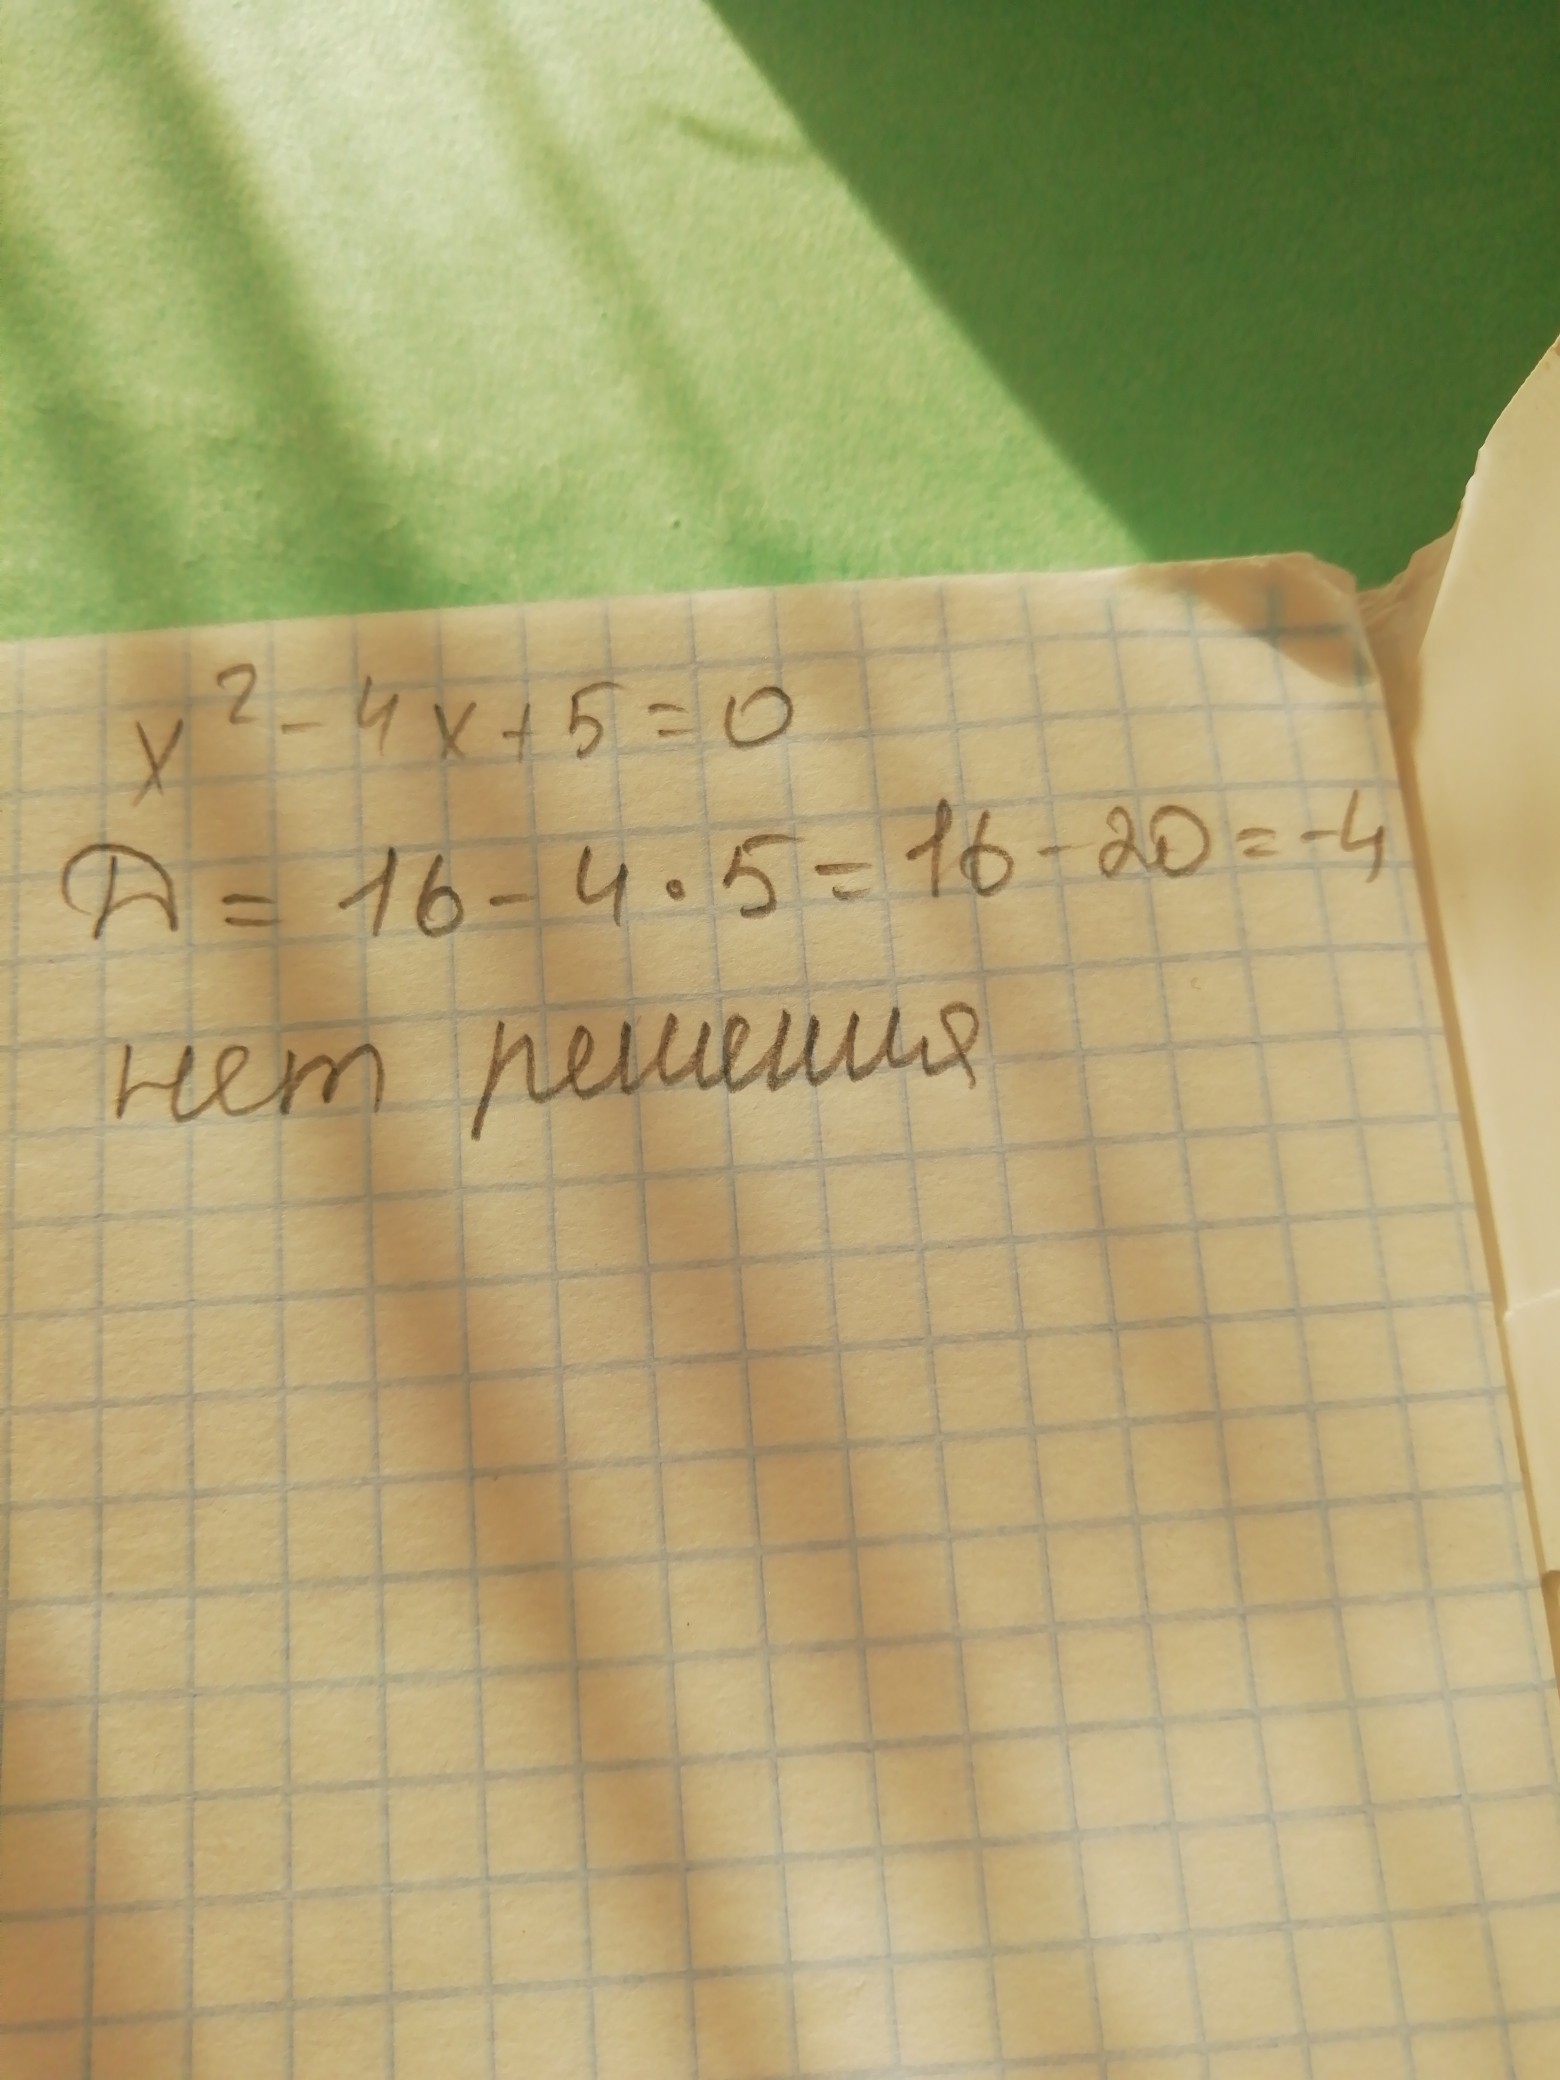 x² - 4x + 5 = 0
D = 16 - 4 · 5 = 16 - 20 = -4
нет решения